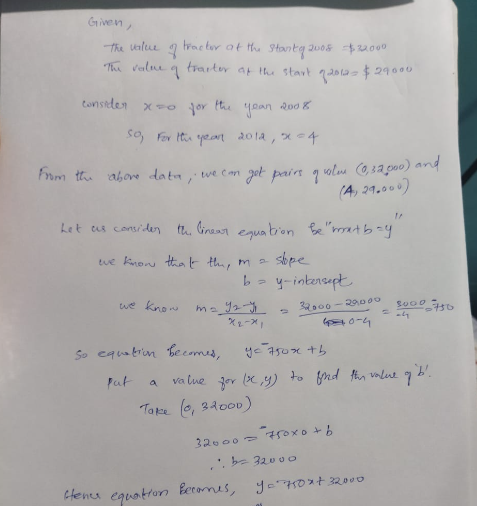 Given,
The value of tractor at the start of 2008 = $32000
The value of tractor at the start of 2012 = $29000
consider x=0 for the year 2008
so, For the year 2012, x=4
From the above data, we can get pairs of value (0,32,000) and
(4, 29.000)
Let us consider the linear equation be "mx+b=y"
we know that the, m = slope
b = y-intersept
we know m = y₂-y₁ / x₂-x₁ = 32000-29000 / 0-4 = 3000 / -4 = -750
So equation becomes, y = -750x + b
put a value for (x,y) to find the value of 'b'.
Take (0, 32000)
32000 = -750x0 + b
∴ b = 32000
Hence equation Becomes, y = -750x + 32000